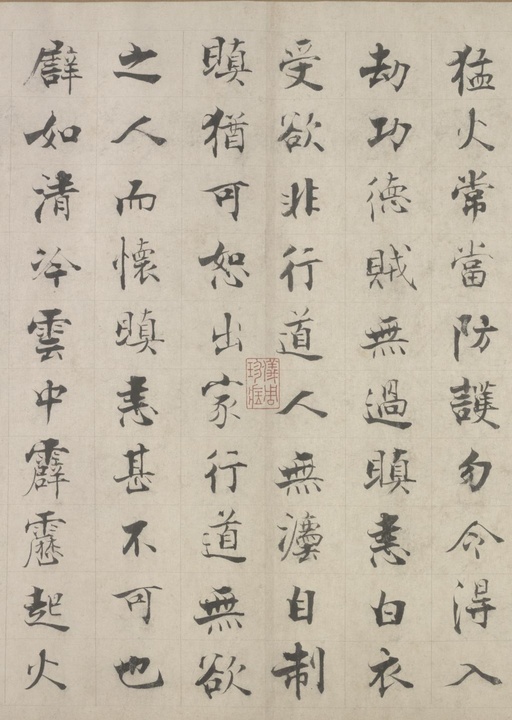 猛火常當防護勿令得入
劫功德賊無過瞋恚白衣
受欲非行道人無灋自制
瞋猶可恕出家行道無欲
之人而懷瞋恚甚不可也
譬如清泠雲中霹靂起火